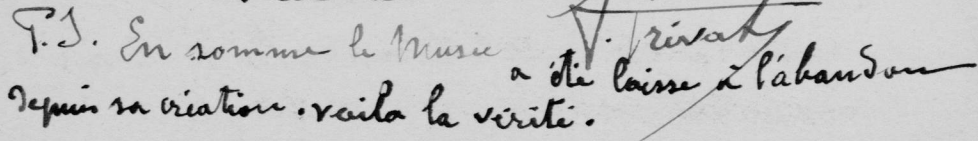 P.S. En somme le Musée
P. Privat
a été laisse à l'abandon
depuis sa création. voila la vérité.